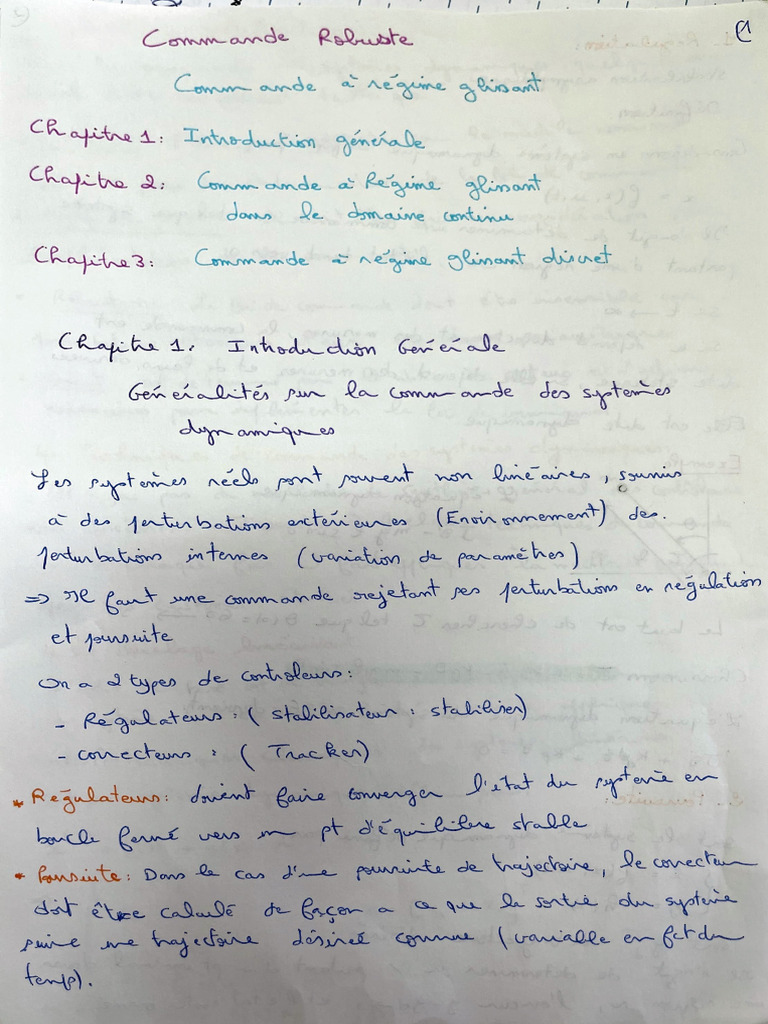 Commande Robuste
Commande à régime glissant
Chapitre 1: Introduction générale
Chapitre 2: Commande à Régime glissant
dans le domaine continu
Chapitre 3: Commande à régime glissant discret
Chapitre 1. Introduction Générale
Généralités sur la commande des systèmes
dynamiques
Les systèmes réels sont souvent non linéaires, soumis
à des perturbations extérieures (Environnement) des
perturbations internes (variation de paramètres)
=> Il faut une commande rejetant ses perturbations en régulation
et poursuite
On a 2 types de controleurs:
- Régulateurs: (stabilisateur: stabiliser)
- correcteurs: (Tracker)
* Régulateurs: doivent faire converger l'état du système en
boucle fermé vers un pt d'équilibre stable
* Poursuite: Dans le cas d'une poursuite de trajectoire, le correcteur
doit être calculé de façon a ce que la sortie du système
suive une trajectoire désirée connue (variable en fct du
temp).